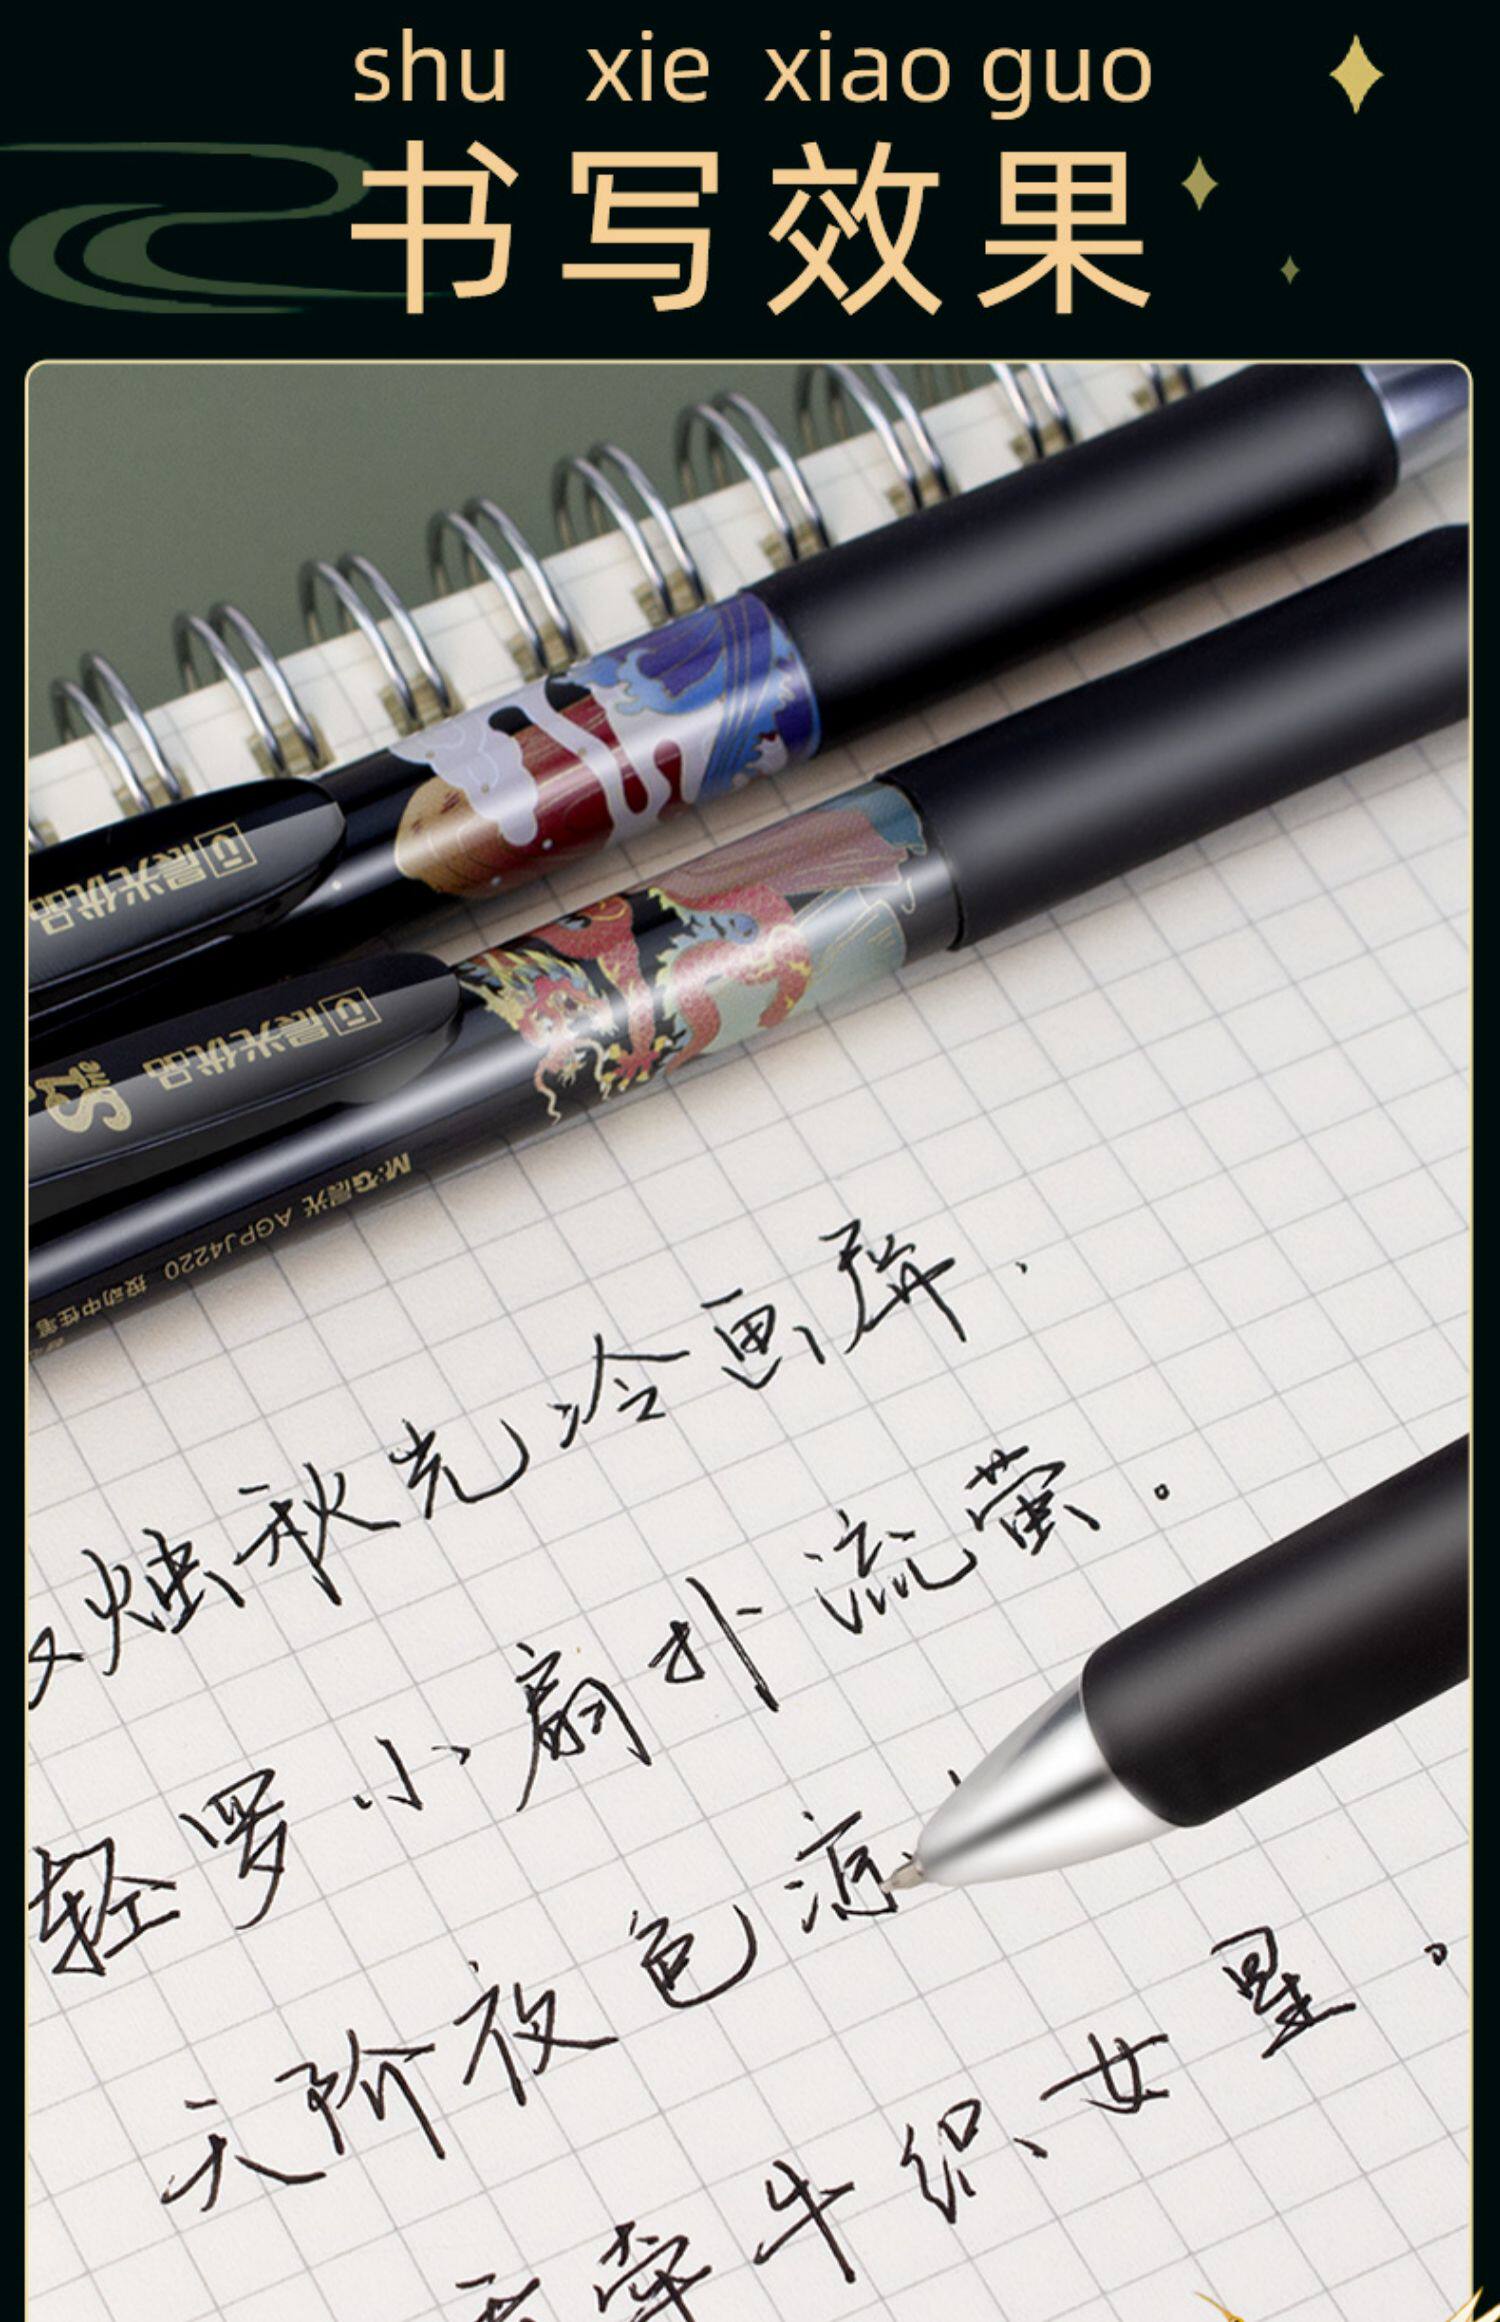 shu xie xiao guo
书写效果
晨光优品
晨光优品
M&G晨光 AGPJ4220 按动中性笔
烛秋光冷画屏，
轻罗小扇扑流萤。
天阶夜色凉
牵牛织女星。